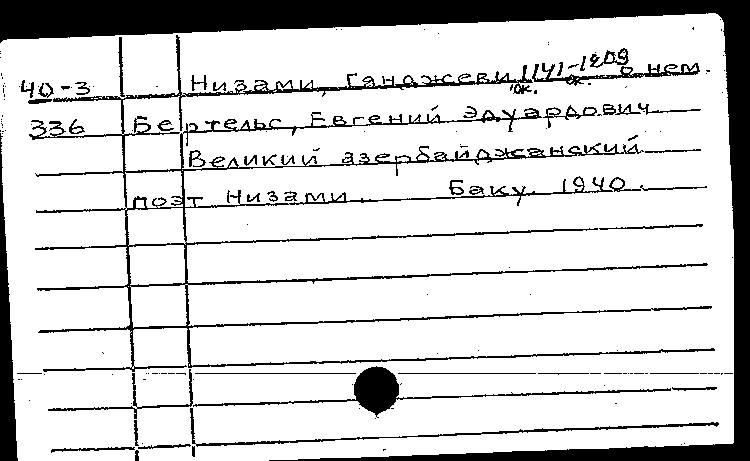 40-3 Низами, Гянджеви 1141-1209 о нем.
ок. ок.
336 Бертельс, Евгений Эдуардович.
Великий азербайджанский
поэт Низами. Баку. 1940.